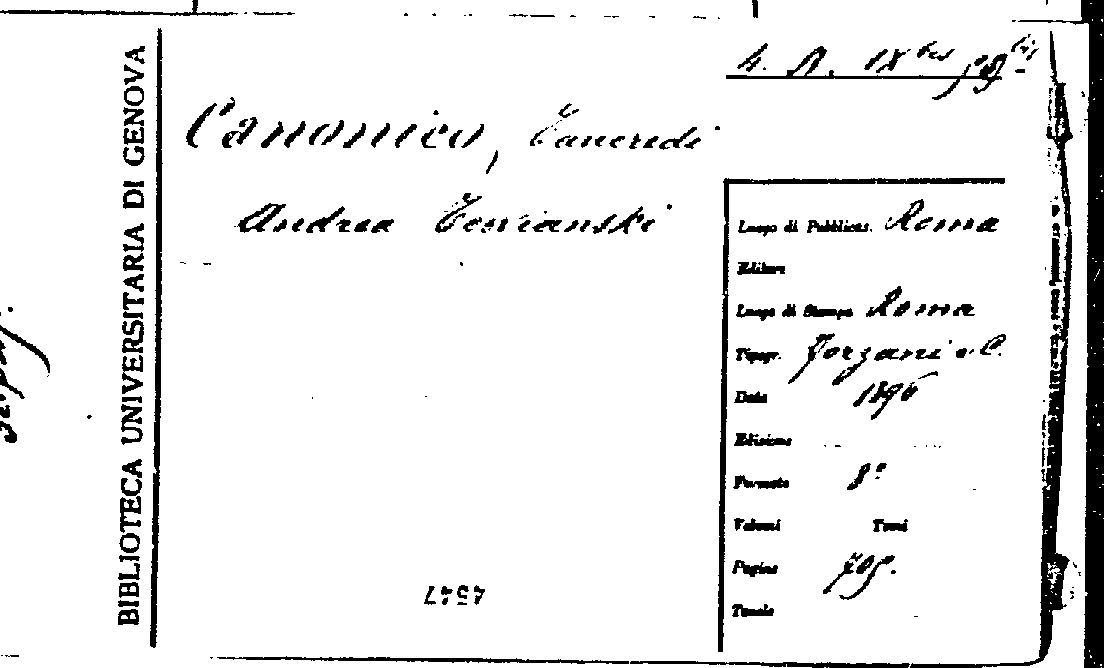 BIBLIOTECA UNIVERSITARIA DI GENOVA
Canonico, Tancredi
Andrea Towianski
Luogo di Pubblicaz. Roma
Editore
Luogo di Stampa Roma
Tipogr. Forzani e C.
Data 1896
Edizione
Formato 8°
Volumi Tomi
Pagine
Tavole
4547